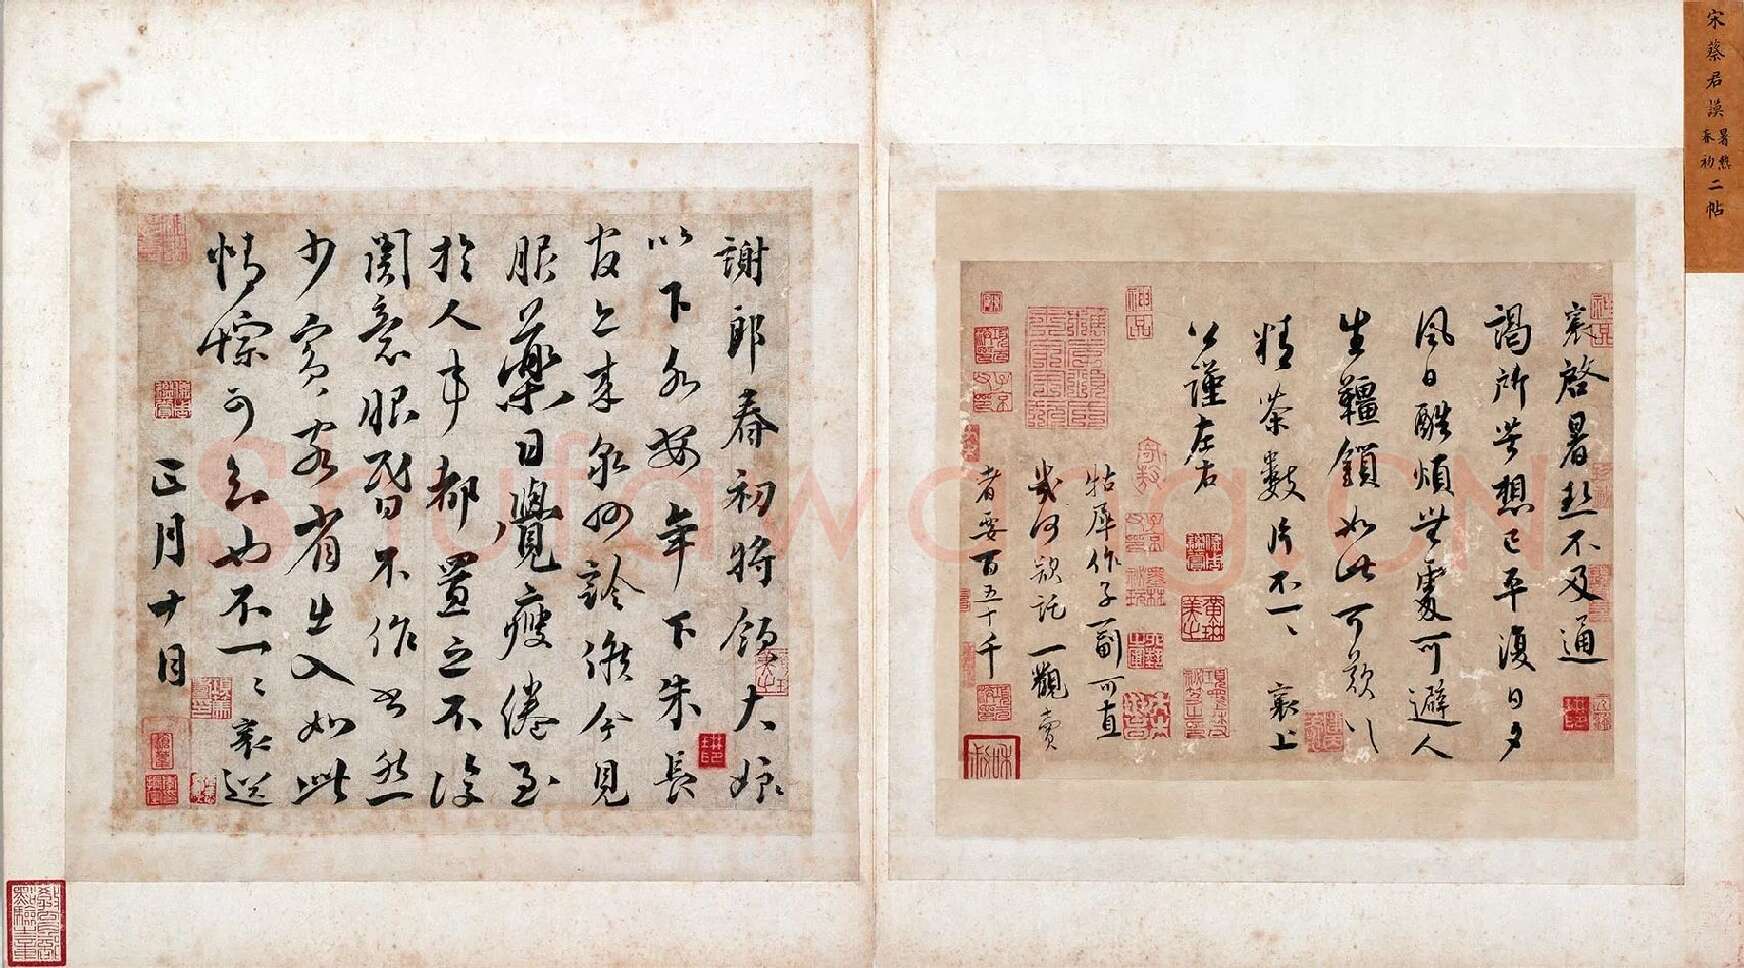 宋蔡君謨暑熱春初二帖
襄啓暑熱不及通
謁所苦想已平復日夕
風日酷煩無處可避人
生韁鎖如此可歎可歎
精茶數片不一一襄上
公謹左右
牯犀作子一副可直
幾何欲託一觀賣
者要百五十千
謝郎春初將領大娘
以下各安年下朱長
官亦來泉州診候今見
服藥日覺瘦倦至
於人事都置之不復
關意眼昏不作書然
少賓客省出入如此
情悰可知也不一一襄送
正月十日
神品
Shufawang.CN